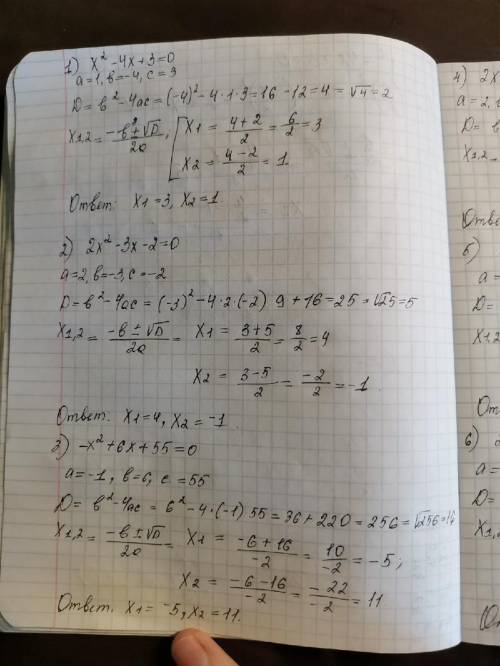 1) x² -4x+3=0
a=1, в=-4, c=3
D= в²-4ac=(-4)²-4·1·3=16-12=4=√4=2
x1,2=(-в±√D)/2a, [x1=(4+2)/2=6/2=3
x2=(4-2)/2=1.
Ответ: x1=3, x2=1.
2) 2x²-3x-2=0
a=2, в=-3, c=-2
D=в²-4ac=(-3)²-4·2·(-2) 9+16=25=√25=5
x1,2=(-в±√D)/2a= x1=(3+5)/2=8/2=4
x2=(3-5)/2=-2/2=-1.
Ответ: x1=4, x2=-1.
3) -x²+6x+55=0
a=-1, в=6, c=55
D= в²-4ac=6²-4·(-1) 55=36+220=256=√256=16
x1,2=(-в±√D)/2a= x1=(-6+16)/-2=10/-2=-5;
x2=(-6-16)/-2=-22/-2=11
Ответ. x1=-5, x2=11.
4) 2x
a=2,
D=
x1,2=
5)
a=
D=
x1,2
6)
a=
D=
x1,2